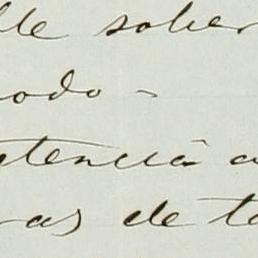 lle sober
odo -
stencia a
ras de ta